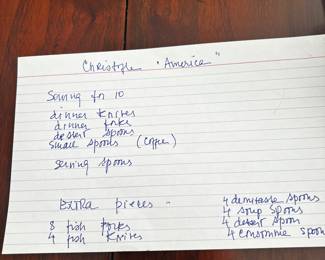 Christofle "America"
Serving for 10
dinner knives
dinner forks
dessert spoons
small spoons (coffee)
serving spoons
Extra pieces -
8 fish forks
4 fish knives
4 demitasse spoons
4 soup spoons
4 dessert spoon
4 consomme spoon